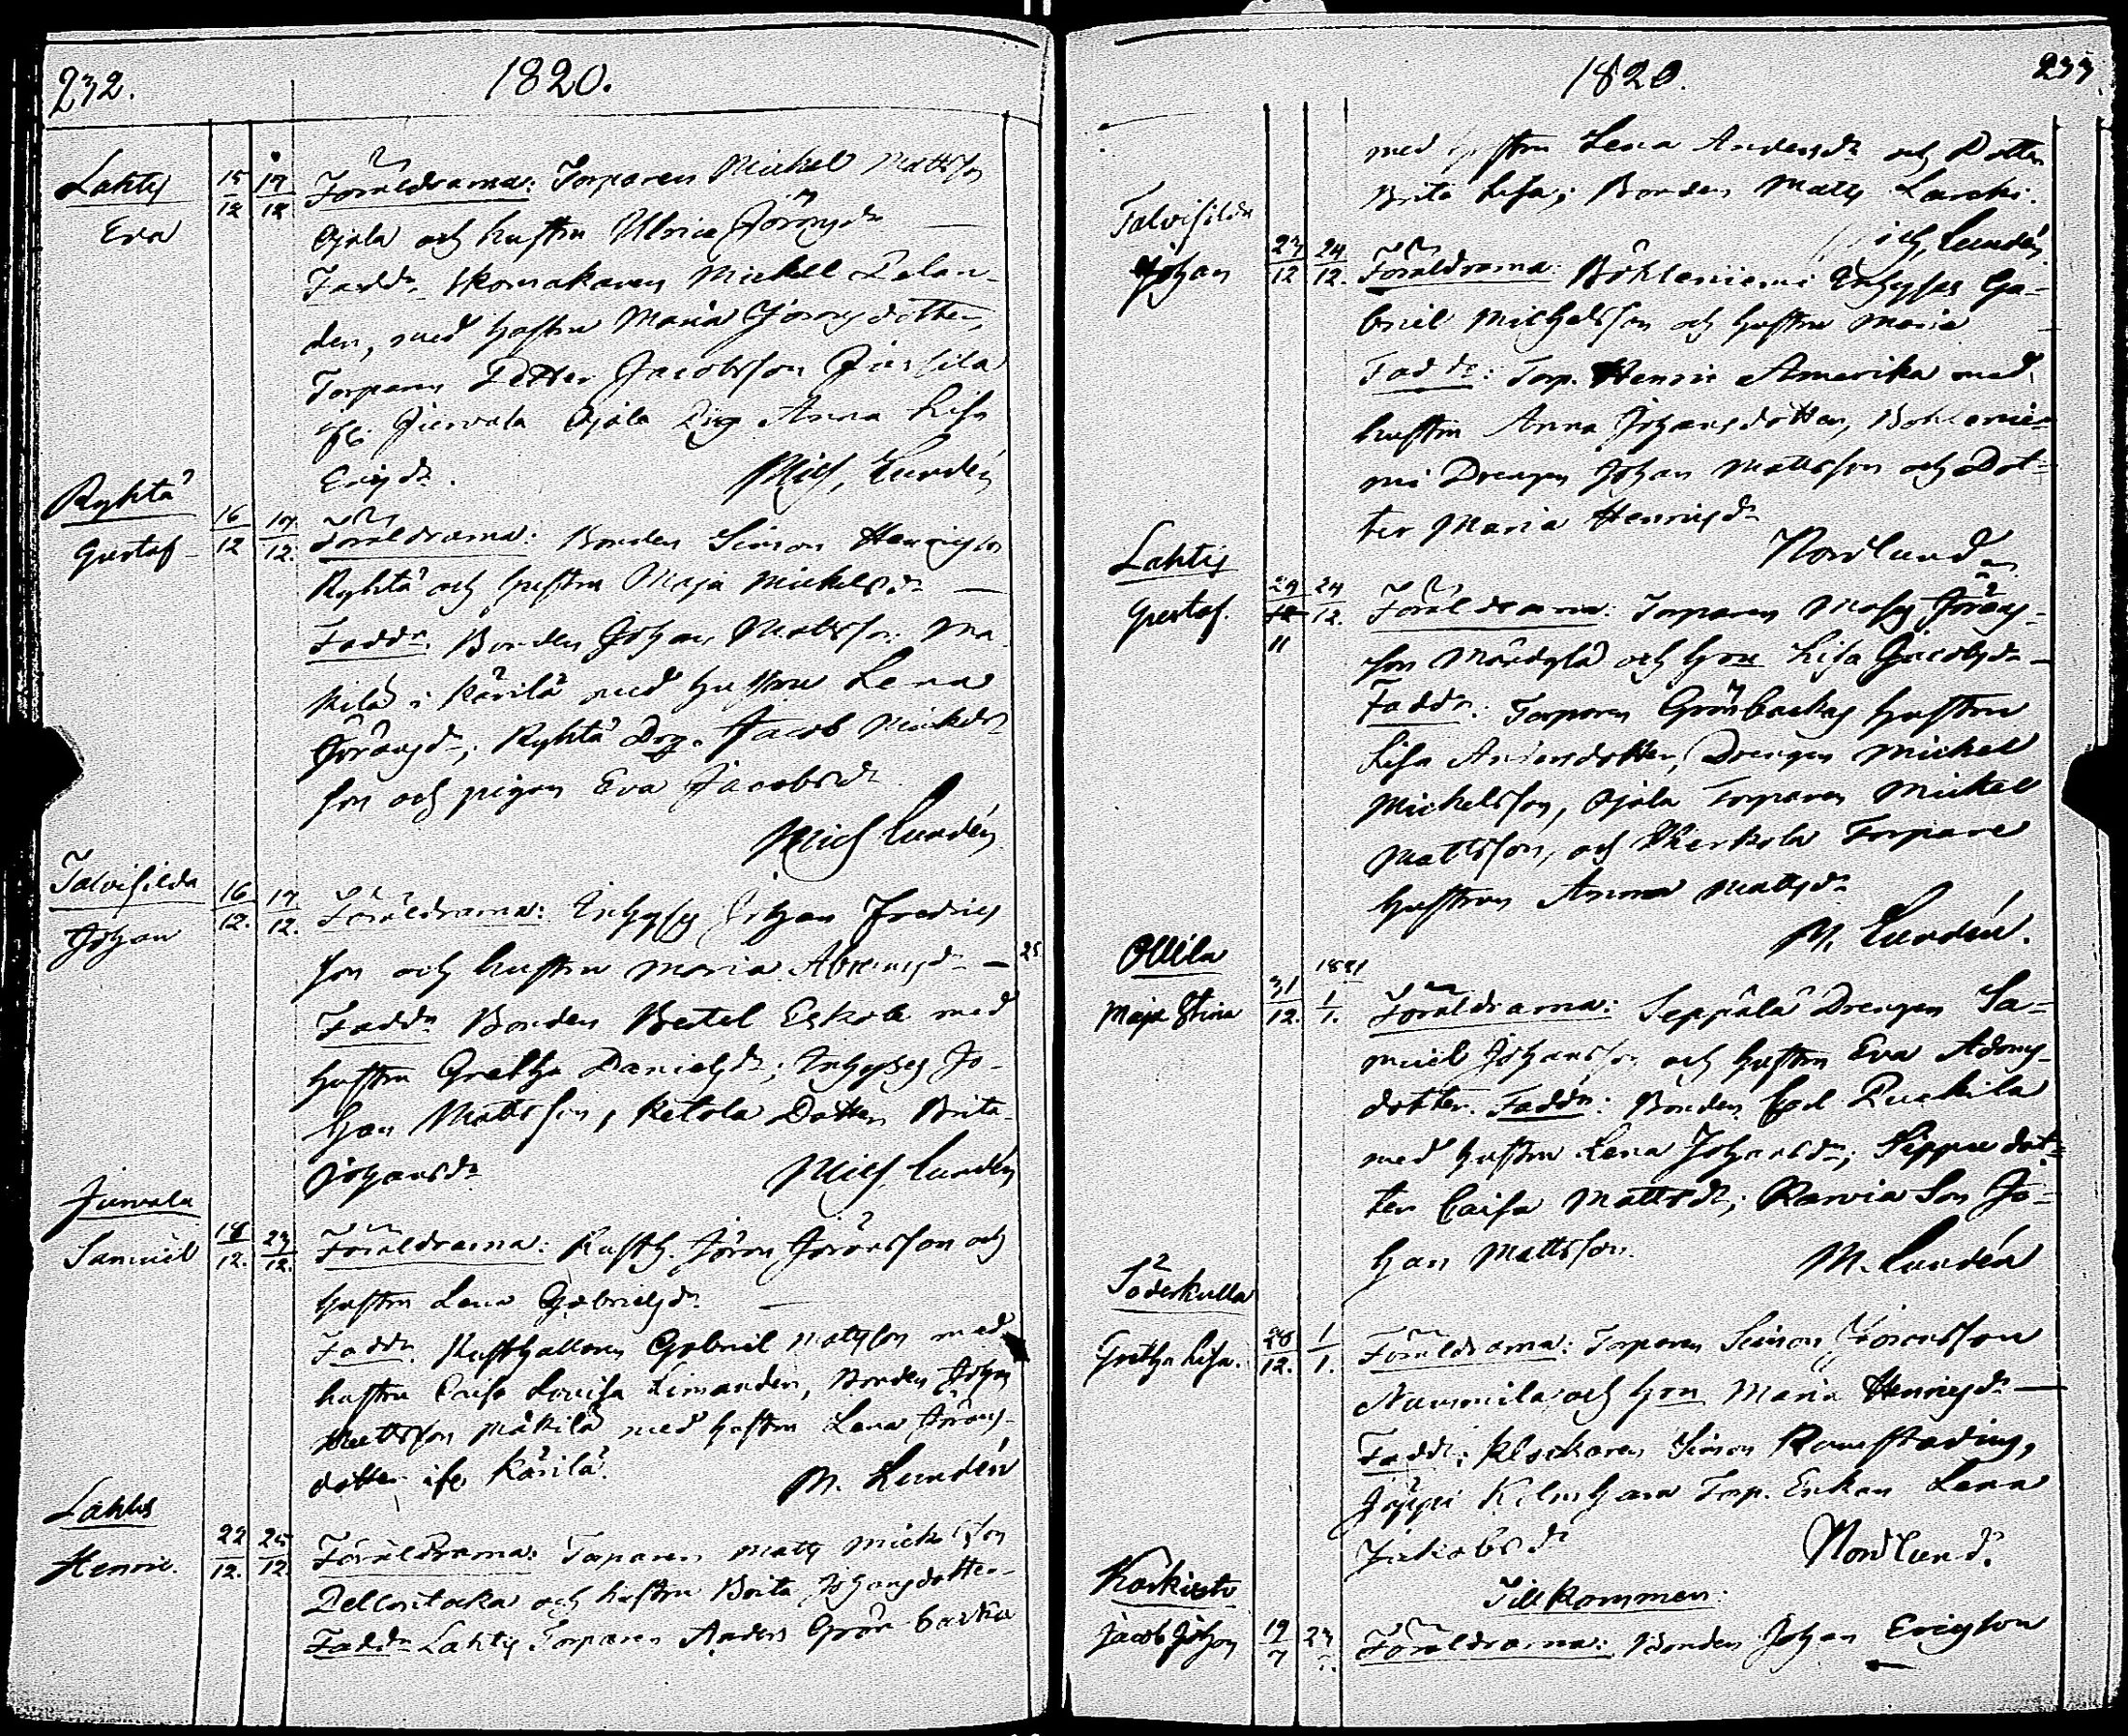 232.
1820.
Lahtis
Eva
15/12 17/12
Föräldrarna: Torparen Michel Mattsson
Ojala och hustru Ulrica Jöransdr
Faddr Skomakaren Mickell Pelan-
der, med hustru Maria Jöransdotter,
Torparen Petter Jacobsson
Jurvala Ojala Pig. Anna Lisa
Ericsdr.
Mich. Lundén
Ryhtä
Gustaf
16/12 17/12.
Föräldrarna: Bonden Simon Henricsson
Ryhtä och hustru Maja Mickelsdr
Faddr. Bonden Johan Mattsson Mä-
kilä i Kärilä med hustru Lena
Jöransdr, Ryhtä Drg. Jacob Mickels-
son och pigan Eva Jacobsdr
Mich Lundén
Talvisilda
Johan
16/12. 17/12.
Föräldrarna: Inhyses Johan Fredrics
son och hustru Maria Abramsdr
Faddr Bonden Bertel Eskola med
hustru Gretha Danielsdr; Inhyses Jo-
han Mattsson, Ketola Dotter Brita
Johansdr
Mich Lundén
Jurvala
Samuel
18/12. 23/12.
Föräldrarna: Rusth. Jöran Jöransson och
hustru Lena Gabrielsdr
Faddr. Rusthållaren Gabriel Mattsson med
hustru Caisa Lovisa Limanden, Bonden Johan
Mattsson Mäkilä med hustru Lena Jörans-
dotter ifr Kärilä.
M. Lundén
Lahtis
Henric.
22/12. 25/12.
Föräldrarna: Torparen Matts Mickelsson
och hustru Brita Johansdotter
Faddr Lahtis Torparen Anders Grönbacka
1820.
233
med hustru Lena Andersdr och Dotter
Brita Lisa; Bonden Matts
Mich, Lundén
Talvisilda
Johan
23/12 24/12.
Föräldrarna: Böhleniemi Inhyses Ga-
briel Michelsson och hustru Maria
Faddr: Torp. Henric Amerika med
hustru Anna Johansdotter, Böhlenie-
mi Drengen Johan Mattsson och Dot-
ter Maria Henricsdr
Nordlund
Lahtis
Gustaf.
24/12 11 24/12.
Föräldrarna: Torparen Moses Jörans-
son och hon Lisa Jacobsdr
Faddr: Torparen Grönbackas hustru
Lisa Andersdotter, Drengen Mickel
Mickelsson, Ojala Torparen Mickel
Mattsson, och Torpare
hustrun Anna Mattsdr
M. Lundén.
Ollila
Maja Stina
31/12. 1821 1/1.
Föräldrarna: Seppälä Drengen Sa-
muel Johansson och hustru Eva Adams-
dotter. Faddr: Bonden
med hustru Lena Johansdr; Seppä dot-
ter Caisa Mattsdr; Karvia Son Jo-
han Mattsson.
M. Lundén
Söderkulla
Gretha Lisa.
28/12. 1/1.
Föräldrarna: Torparen Simon Jöransson
Nummila och hon Maria Henricsdr
Faddr: Klockaren Simon Ramstadius,
Torp. Enkan Lena
Jakobsdr
Nordlund.
Tillkommen:
Korkisto
Jacob Johan
19/7 23/7.
Föräldrarna: Bonden Johan Ericsson